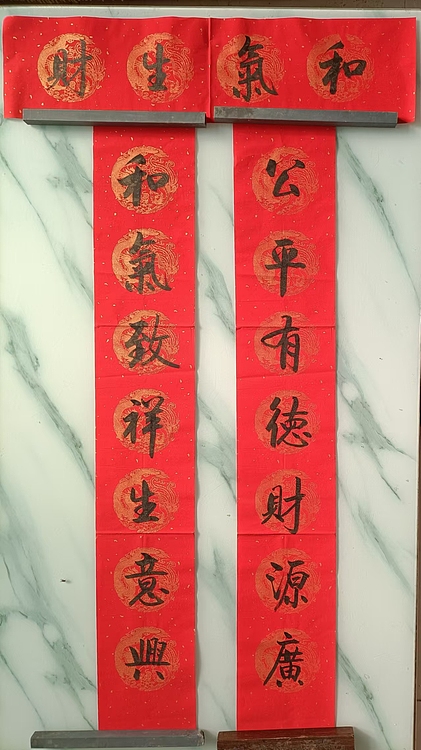 和氣生財
公平有徳財源廣
和氣致祥生意興